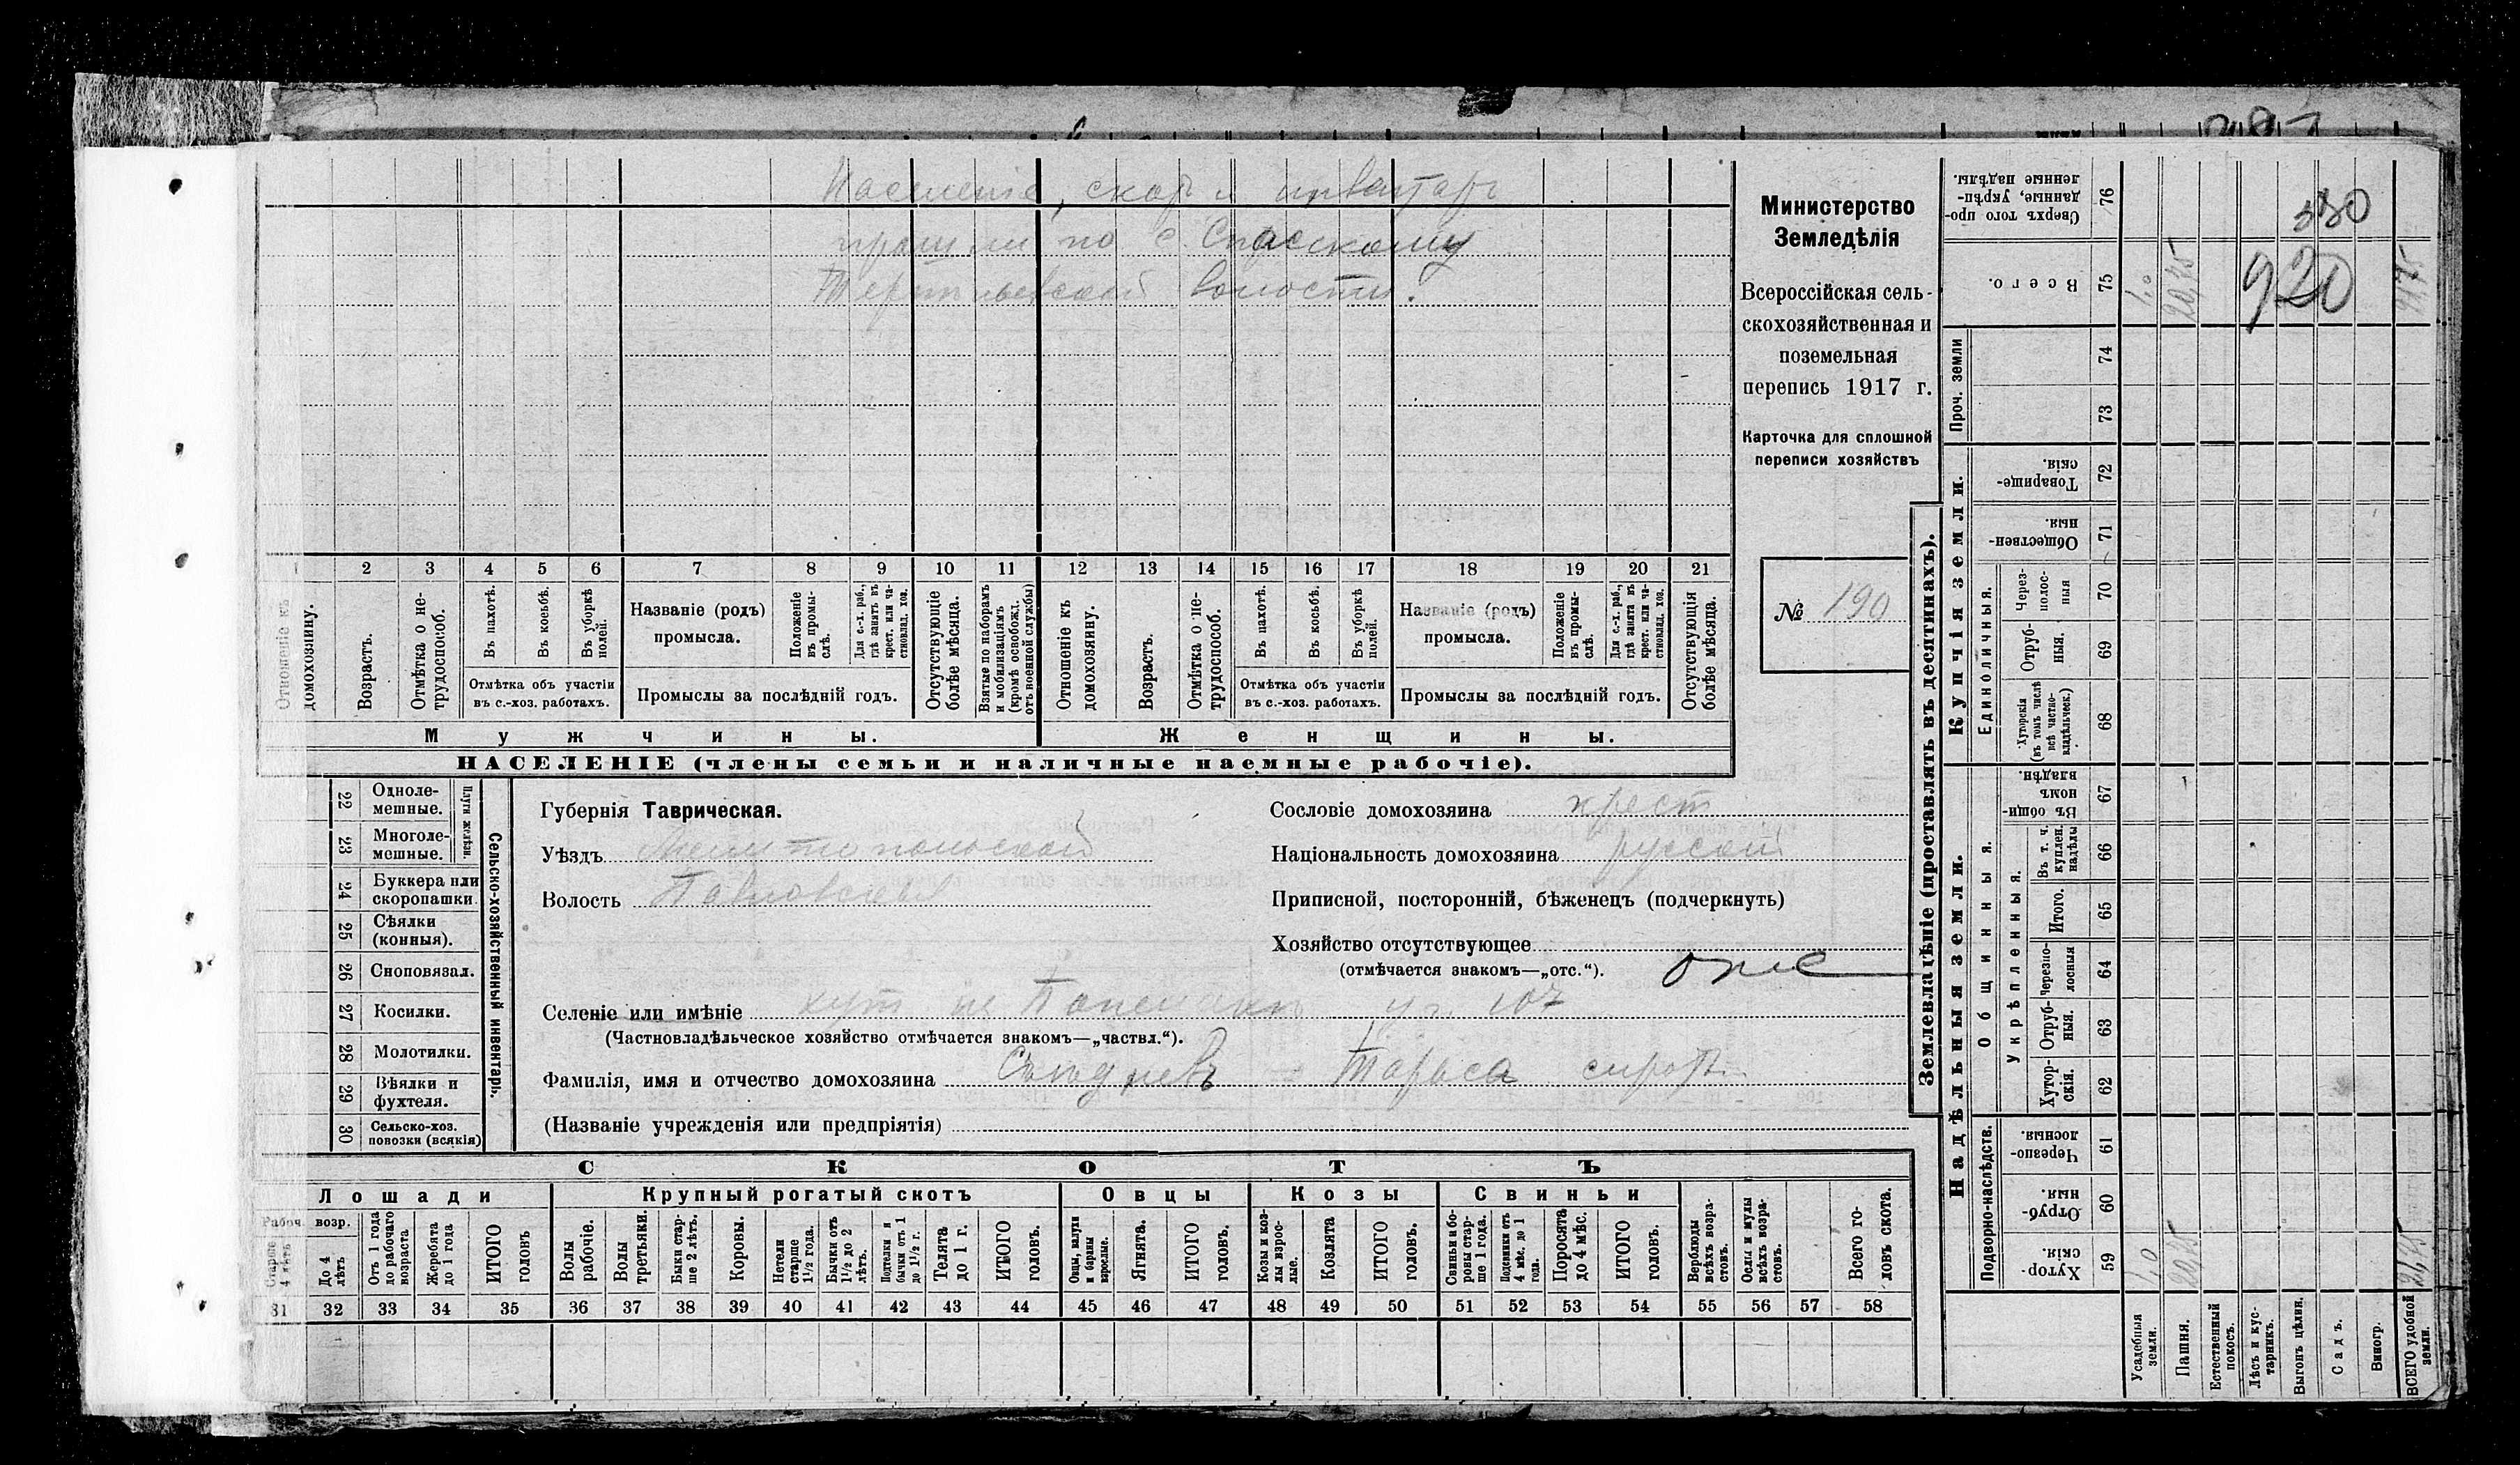 Населеніе, скотъ и инвентарь
прошли по с. Спасскому
волости.
Министерство
Земледѣлія
Всероссійская сель-
скохозяйственная и
поземельная
перепись 1917 г.
Карточка для сплошной
переписи хозяйствъ
№ 190
1 2 3 4 5 6 7 8 9 10 11 12 13 14 15 16 17 18 19 20 21
Отношеніе къ домохозяину.
Возрастъ.
Отмѣтка о не-трудоспособ.
Въ пахотѣ.
Въ косьбѣ.
Въ уборкѣ полей.
Отмѣтка объ участіи въ с.-хоз. работахъ.
Названіе (родъ) промысла.
Положеніе въ промы-слѣ.
Для с.-х. раб., гдѣ занятъ въ крест. или ча-стновлад. хоз.
Промыслы за послѣдній годъ.
Отсутствующіе болѣе мѣсяца.
Взятые по наборамъ и мобилизаціямъ (кромѣ освобожд. отъ военной службы)
Отношеніе къ домохозяину.
Возрастъ.
Отмѣтка о не-трудоспособ.
Въ пахотѣ.
Въ косьбѣ.
Въ уборкѣ полей.
Отмѣтка объ участіи въ с.-хоз. работахъ.
Названіе (родъ) промысла.
Положеніе въ промы-слѣ.
Для с.-х. раб., гдѣ занята въ крест. или ча-стновлад. хоз.
Промыслы за послѣдній годъ.
Отсутствующія болѣе мѣсяца.
Мужчины. Женщины.
НАСЕЛЕНІЕ (члены семьи и наличные наемные рабочіе).
22 Одноле-мешные.
23 Многоле-мешные.
Плуги желѣзн.
24 Буккера или скоропашки.
25 Сѣялки (конныя).
26 Сноповязал.
27 Косилки.
28 Молотилки.
29 Вѣялки и фухтеля.
30 Сельско-хоз. повозки (всякія)
Сельско-хозяйственный инвентарь.
Губернія Таврическая.
Уѣздъ Мелитопольскій
Волость Павловская
Сословіе домохозяина крест
Національность домохозяина русскій
Приписной, посторонній, бѣженецъ (подчеркнуть)
Хозяйство отсутствующее
(отмѣчается знакомъ—„отс.“).
Селеніе или имѣніе хут уч. 107
(Частновладѣльческое хозяйство отмѣчается знакомъ—„частвл.“).
Фамилія, имя и отчество домохозяина Тараса сироты
(Названіе учрежденія или предпріятія)
СКОТЪ
Лошади Крупный рогатый скотъ Овцы Козы Свиньи
Рабоч. возр.
Старше 4 лѣтъ
До 4 лѣтъ
Отъ 1 года до рабочаго возраста
Жеребята до 1 года
ИТОГО головъ
Волы рабочіе.
Волы третьяки.
Быки стар-ше 2 лѣтъ.
Коровы.
Нетели старше 1½ года.
Бычки отъ 1½ до 2 лѣтъ.
Подтелки и бычки отъ 1 до 1½ г.
Телята до 1 г.
ИТОГО головъ.
Овцы, валухи и бараны взрослые.
Ягнята.
ИТОГО головъ.
Козы и коз-лы взрос-лые.
Козлята
ИТОГО головъ.
Свиньи и бо-ровы стар-ше 1 года.
Подсвинки отъ 4 мѣс. до 1 года.
Поросята до 4 мѣс.
ИТОГО головъ.
Верблюды всѣхъ возра-стовъ.
Ослы и мулы всѣхъ возра-стовъ.
Всего го-ловъ скота.
31 32 33 34 35 36 37 38 39 40 41 42 43 44 45 46 47 48 49 50 51 52 53 54 55 56 57 58
Землевладѣніе (проставлять въ десятинахъ).
Надѣльныя земли. Купчія земли. Проч. земли
Подворно-наслѣдств.
Общинныя.
Укрѣпленныя.
Единоличныя.
Сверхъ того про-данные, укрѣп-ленные надѣлы. 76 330
Всего. 75 1,0 20,75 920
74
73
Товарище-скія. 72
Обществен-ныя. 71
Через-полос-ныя 70
Отруб-ныя. 69
Хуторскія (въ томъ числѣ всѣ частно-владѣльческ.) 68
Въ общин-номъ владѣн. 67
Въ т. ч. куплен. надѣлы 66
Итого. 65
Черезпо-лосныя 64
Отруб-ныя. 63
Хутор-скія. 62
Черезпо-лосныя. 61
Отруб-ныя. 60
Хутор-скія. 59 1,0 20,75
Усадебныя земли.
Пашня.
Естественный покосъ.
Лѣсъ и кус-тарникъ.
Выгонъ цѣлин.
Садъ.
Виногр.
ВСЕГО удобной земли.